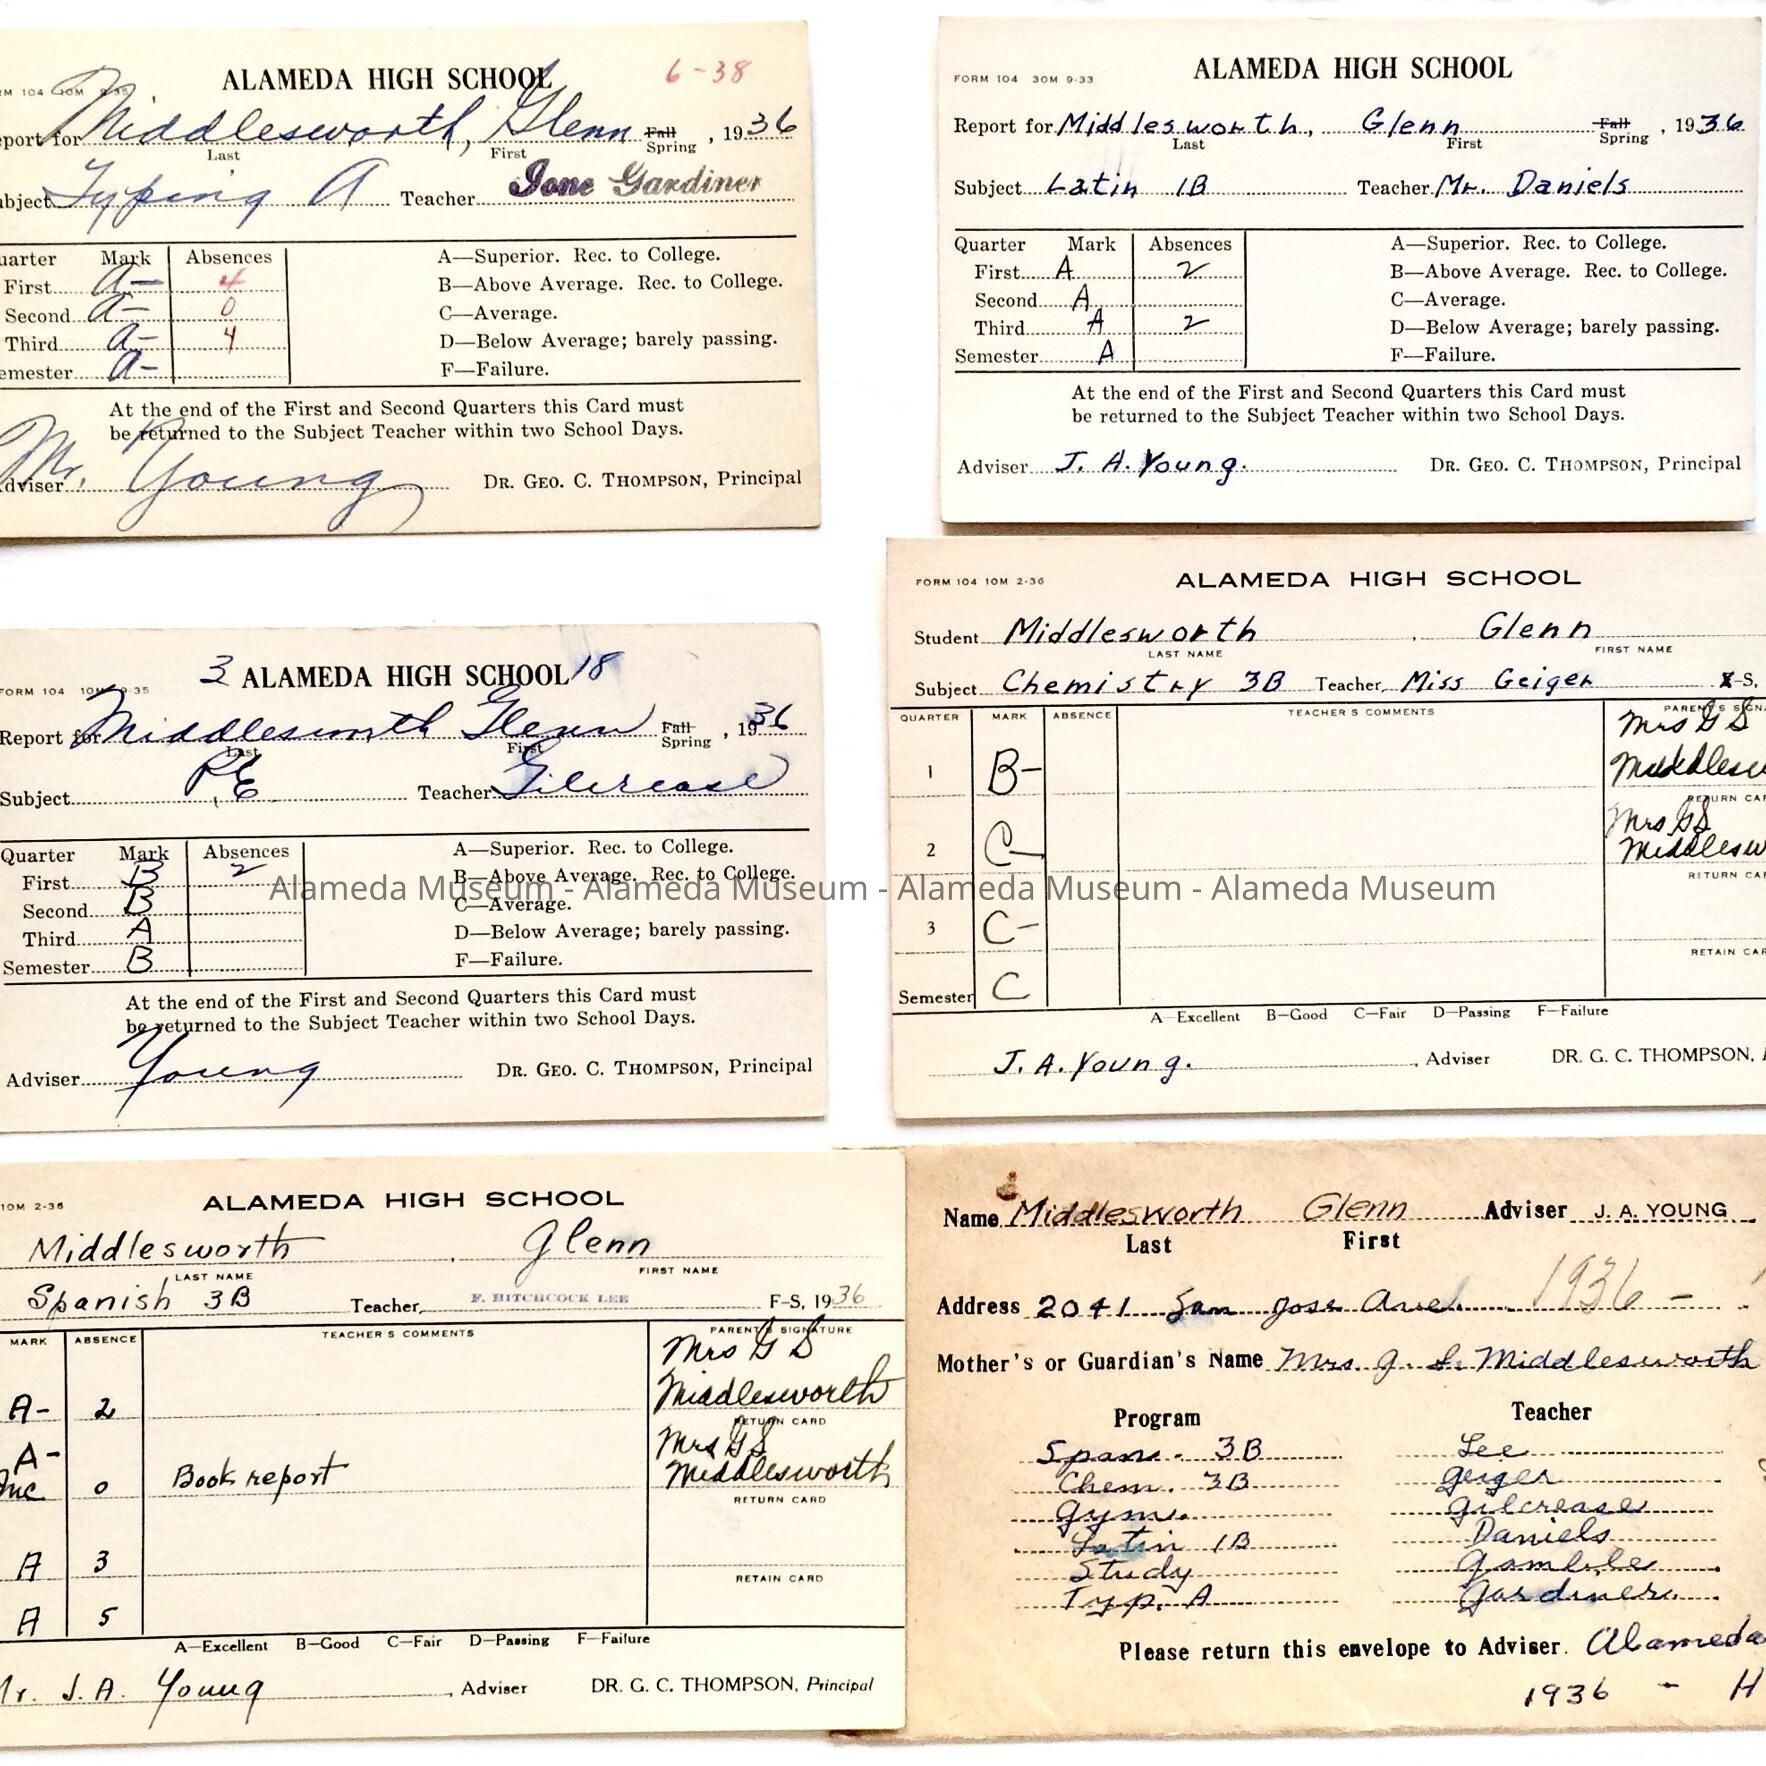 ALAMEDA HIGH SCHOOL 6-38
RM 104 10M 9-35
eport for Middlesworth, Glenn Fall Spring, 1936
Last First
ubject Typing A Teacher Ione Gardiner
uarter Mark Absences
First A- 4
Second A- 0
Third A- 4
emester A-
A—Superior. Rec. to College.
B—Above Average. Rec. to College.
C—Average.
D—Below Average; barely passing.
F—Failure.
At the end of the First and Second Quarters this Card must
be returned to the Subject Teacher within two School Days.
dviser Mr. Young DR. GEO. C. THOMPSON, Principal
FORM 104 30M 9-33 ALAMEDA HIGH SCHOOL
Report for Middlesworth, Glenn Fall Spring, 1936
Last First
Subject Latin 1B Teacher Mr. Daniels
Quarter Mark Absences
First A 2
Second A
Third A 2
Semester A
A—Superior. Rec. to College.
B—Above Average. Rec. to College.
C—Average.
D—Below Average; barely passing.
F—Failure.
At the end of the First and Second Quarters this Card must
be returned to the Subject Teacher within two School Days.
Adviser J. A. Young. DR. GEO. C. THOMPSON, Principal
3 ALAMEDA HIGH SCHOOL 18
FORM 104 10M 9-35
Report for Middlesworth Glenn Fall Spring, 1936
Last First
Subject P.E Teacher Gilcrease
Quarter Mark Absences
First B 2
Second B
Third A
Semester B
A—Superior. Rec. to College.
B—Above Average. Rec. to College.
C—Average.
D—Below Average; barely passing.
F—Failure.
At the end of the First and Second Quarters this Card must
be returned to the Subject Teacher within two School Days.
Adviser Young DR. GEO. C. THOMPSON, Principal
FORM 104 10M 2-36 ALAMEDA HIGH SCHOOL
Student Middlesworth, Glenn
LAST NAME FIRST NAME
Subject Chemistry 3B Teacher Miss Geiger F-S,
QUARTER MARK ABSENCE TEACHER'S COMMENTS PARENT'S SIGNA
1 B- Mrs G S Middlesw
RETURN CAR
2 C- Mrs G S Middlesw
RETURN CAR
3 C-
RETAIN CAR
Semester C
A—Excellent B—Good C—Fair D—Passing F—Failure
J. A. Young., Adviser DR. G. C. THOMPSON,
Alameda Museum - Alameda Museum - Alameda Museum - Alameda Museum
10M 2-36 ALAMEDA HIGH SCHOOL
Middlesworth, Glenn
LAST NAME FIRST NAME
Spanish 3B Teacher F. HITCHCOCK LEE F-S, 1936
MARK ABSENCE TEACHER'S COMMENTS PARENT'S SIGNATURE
A- 2 Mrs G S Middlesworth
RETURN CARD
A- Inc 0 Book report Mrs G S Middlesworth
RETURN CARD
A 3
RETAIN CARD
A 5
A—Excellent B—Good C—Fair D—Passing F—Failure
Mr. J. A. Young, Adviser DR. G. C. THOMPSON, Principal
Name Middlesworth Glenn Adviser J. A. YOUNG
Last First
Address 2041 San Jose Ave. 1936 -
Mother's or Guardian's Name Mrs. G. S. Middlesworth
Program Teacher
Span. 3B Lee
Chem. 3B Geiger
Gym. Gilcrease
Latin 1B Daniels
Study Gamble
Typ. A Gardiner.
Please return this envelope to Adviser. Alameda
1936 - H